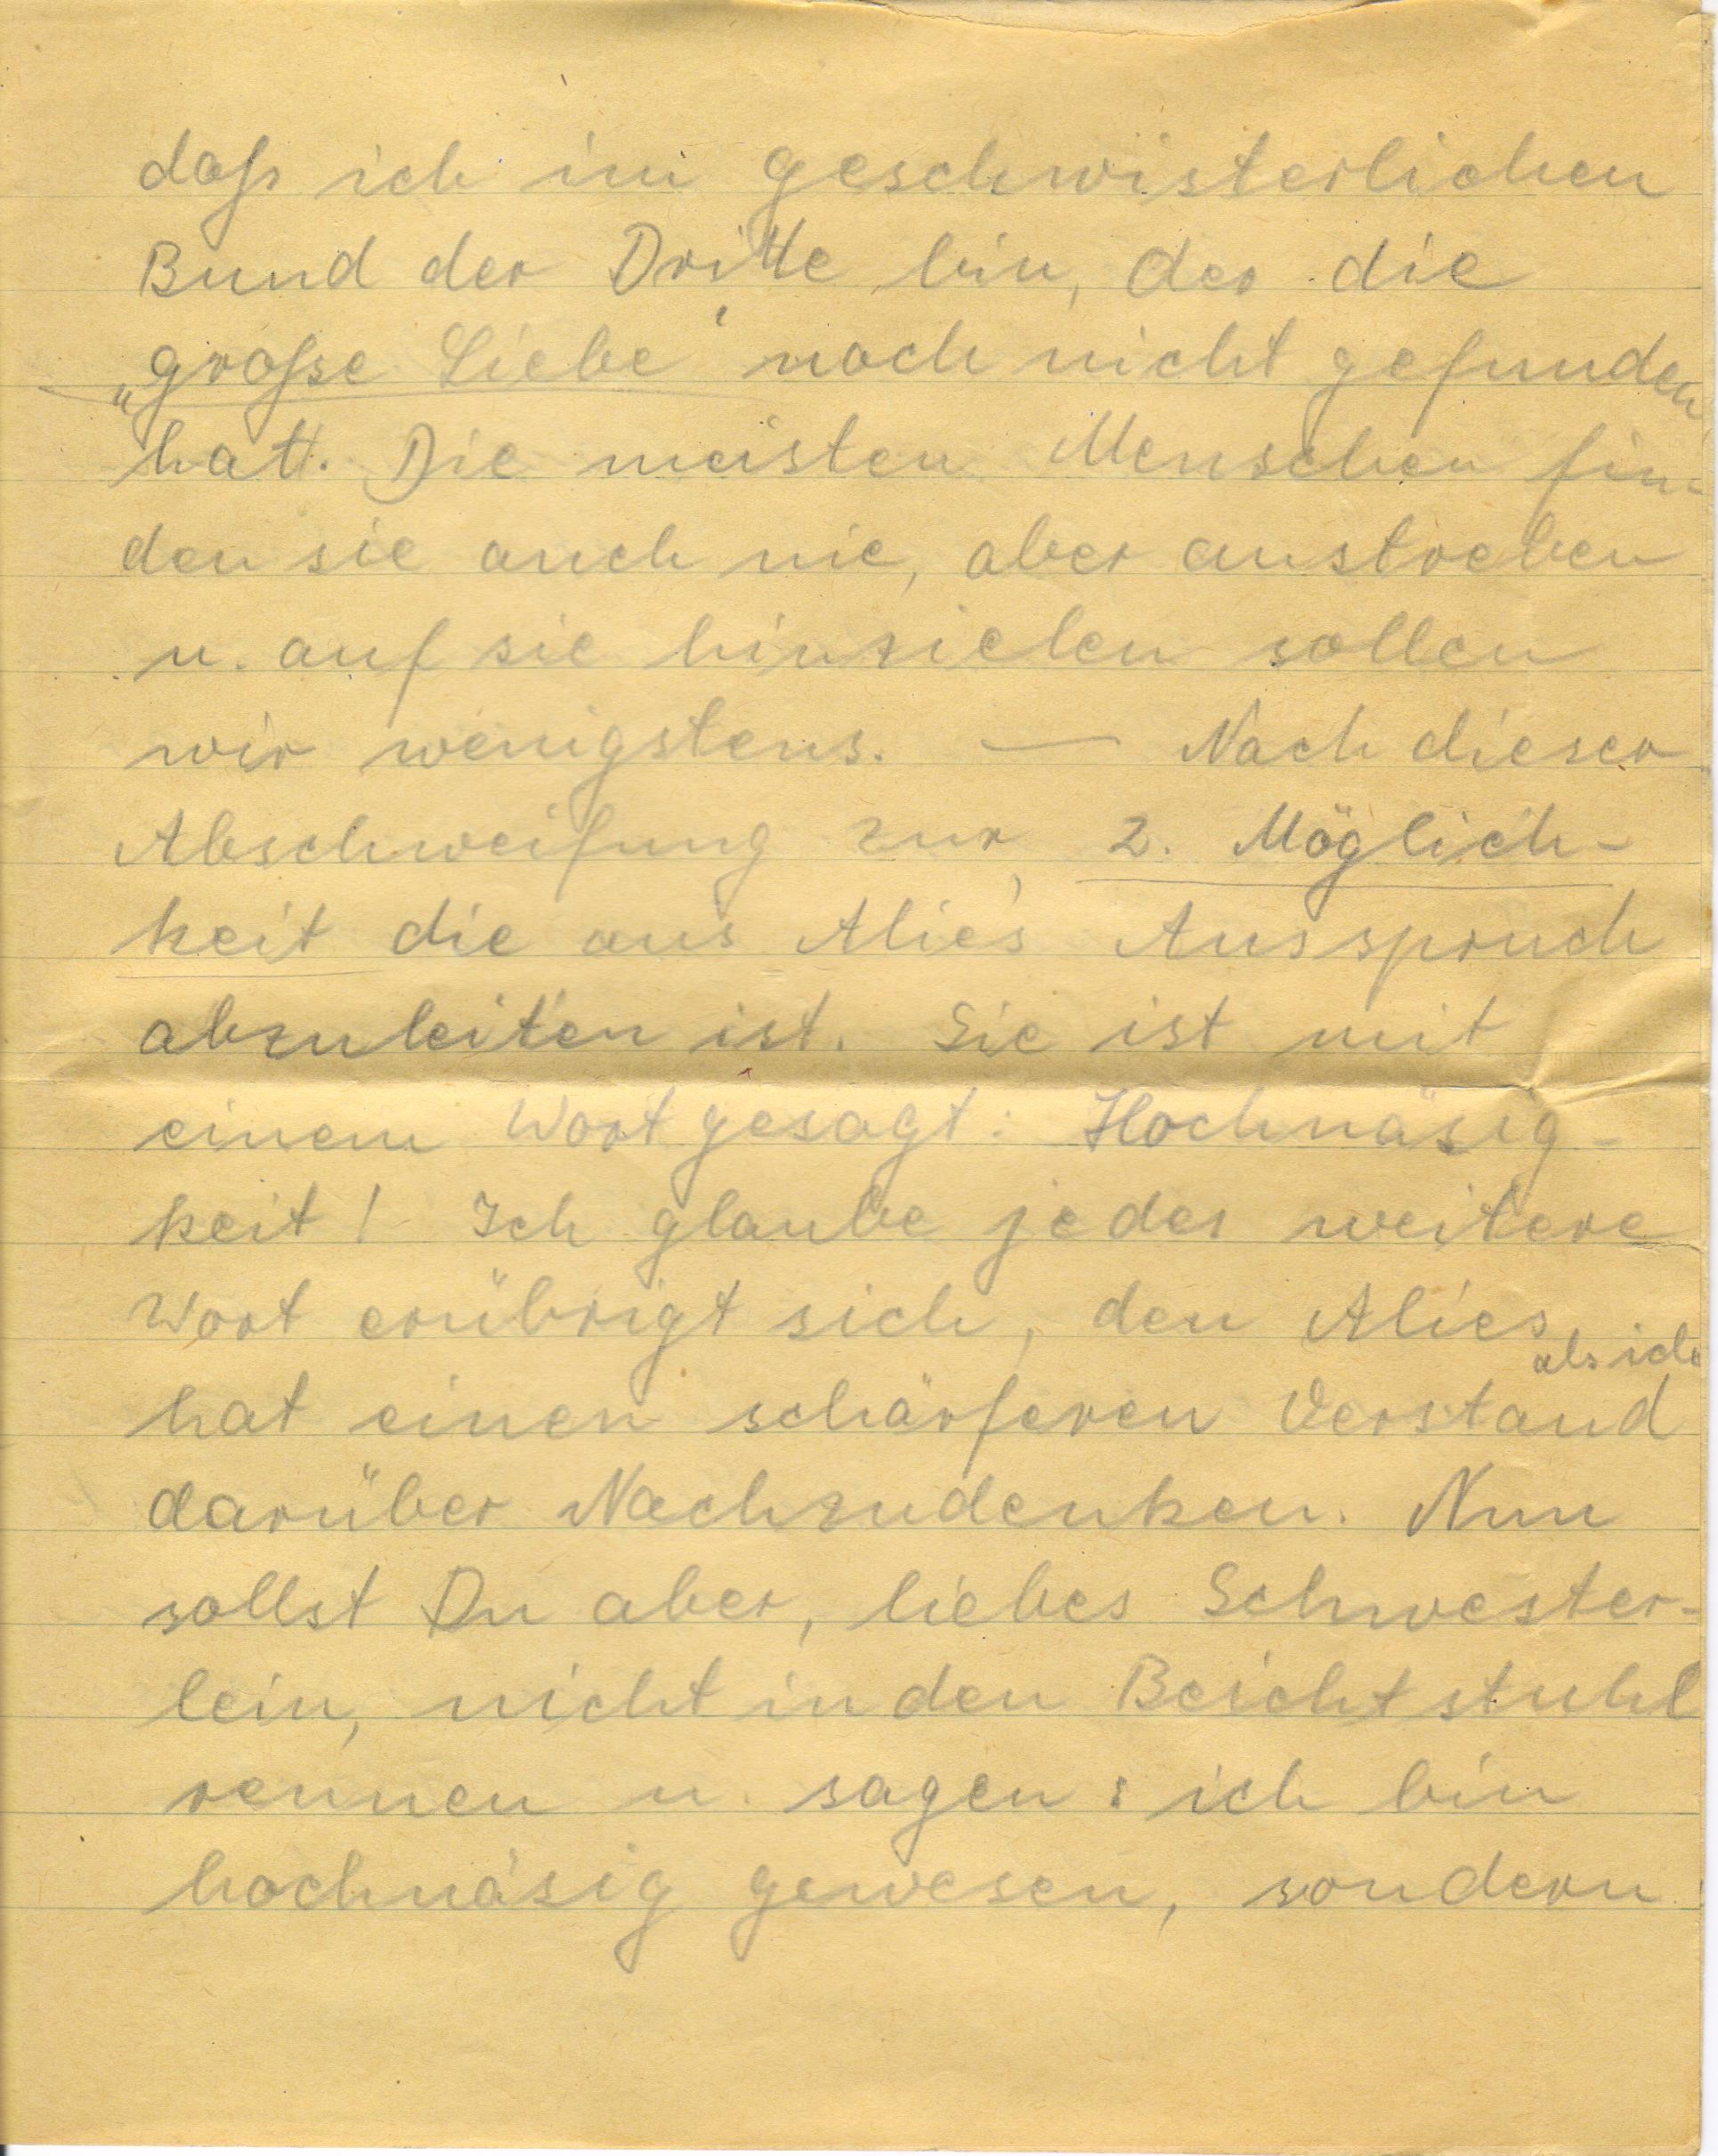 daß ich im geschwisterlichen
Bund der Dritte bin, der die
„große Liebe" noch nicht gefunden
hat. Die meisten Menschen fin-
den sie auch nie, aber anstreben
u. auf sie hinzielen sollen
wir wenigstens. — Nach dieser
Abschweifung zur 2. Möglich-
keit die aus Alie's Ausspruch
abzuleiten ist. Sie ist mit
einem Wort gesagt: Hochnäsig-
keit! Ich glaube jedes weitere
Wort erübrigt sich, den Alies
als ich
hat einen schärferen Verstand
darüber Nachzudenken. Nun
sollst Du aber, liebes Schwester-
lein, nicht in den Beichtstuhl
rennen u. sagen: ich bin
hochnäsig gewesen, sondern